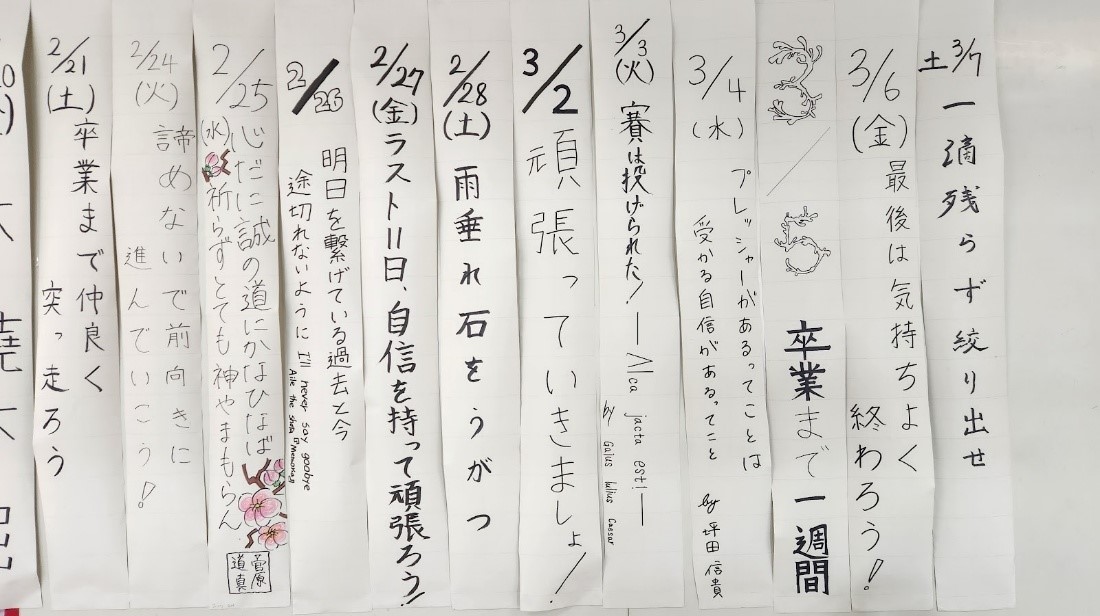 2/21
(土)
卒業まで仲良く
突っ走ろう
2/24
(火)
諦めないで前向きに
進んでいこう!
2/25
(水)
心だに誠の道にかなひなば
祈らずとても神やまもらん
菅原
道真
2/26
明日を繋げている過去と今
途切れないように I'll never say goodbye
Aile the Shota
2/27
(金)
ラスト11日、自信を持って頑張ろう!
2/28
(土)
雨垂れ石をうがつ
3/2
頑張っていきましょ!
3/3
(火)
賽は投げられた! ― Alea jacta est! ―
by Gaius Iulius Caesar
3/4
(水)
プレッシャーがあるってことは
受かる自信があるってこと by 坪田信貴
3/5
卒業まで一週間
3/6
(金)
最後は気持ちよく
終わろう!
3/7
土
一滴残らず絞り出せ